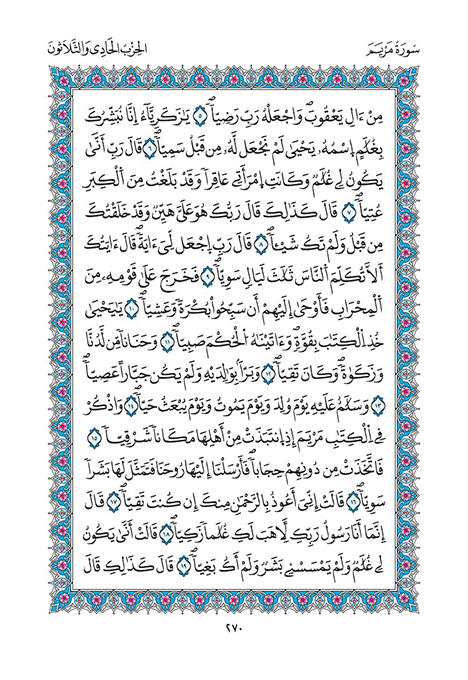 سُورَةُ مَرْيَمَ
الحِزْبُ الحَادِي وَالثَّلَاثُونَ
مِنْ ءَالِ يَعْقُوبَۖ وَاجْعَلْهُ رَبِّ رَضِيّاًۖ ٥ يَٰزَكَرِيَّآءُ اِنَّا نُبَشِّرُكَ
بِغُلَٰمٍ اِسْمُهُۥ يَحْيَىٰ لَمْ نَجْعَل لَّهُۥ مِن قَبْلُ سَمِيّاًۖ ٦ قَالَ رَبِّ أَنَّىٰ
يَكُونُ لِي غُلَٰمٌ وَكَانَتِ اِمْرَأَتِي عَاقِراً وَقَدْ بَلَغْتُ مِنَ اَلْكِبَرِ
عُتِيّاًۖ ٧ قَالَ كَذَٰلِكَ قَالَ رَبُّكَ هُوَ عَلَيَّ هَيِّنٌ وَقَدْ خَلَقْتُكَ
مِن قَبْلُ وَلَمْ تَكُ شَيْـٔاًۖ ٨ قَالَ رَبِّ اِجْعَل لِّيَ ءَايَةًۖ قَالَ ءَايَتُكَ
أَلَّا تُكَلِّمَ اَلنَّاسَ ثَلَٰثَ لَيَالٍ سَوِيّاًۖ ٩ فَخَرَجَ عَلَىٰ قَوْمِهِۦ مِنَ
اَلْمِحْرَابِ فَأَوْحَىٰ إِلَيْهِمْ أَن سَبِّحُواْ بُكْرَةً وَعَشِيّاًۖ ١٠ يَٰيَحْيَىٰ
خُذِ اِلْكِتَٰبَ بِقُوَّةٍۖ وَءَاتَيْنَٰهُ اُلْحُكْمَ صَبِيّاًۖ ١١ وَحَنَاناً مِّن لَّدُنَّا
وَزَكَوٰةًۖ وَكَانَ تَقِيّاًۖ ١٢ وَبَرّاً بِوَٰلِدَيْهِ وَلَمْ يَكُن جَبَّاراً عَصِيّاًۖ
١٣ وَسَلَٰمٌ عَلَيْهِ يَوْمَ وُلِدَ وَيَوْمَ يَمُوتُ وَيَوْمَ يُبْعَثُ حَيّاًۖ ١٤ وَاذْكُرْ
فِي اِلْكِتَٰبِ مَرْيَمَ إِذِ اِنتَبَذَتْ مِنْ أَهْلِهَا مَكَاناً شَرْقِيّاًۖ ١٥
فَاتَّخَذَتْ مِن دُونِهِمْ حِجَاباًۖ فَأَرْسَلْنَا إِلَيْهَا رُوحَنَا فَتَمَثَّلَ لَهَا بَشَراً
سَوِيّاًۖ ١٦ قَالَتِ اِنِّيَ أَعُوذُ بِالرَّحْمَٰنِ مِنكَ إِن كُنتَ تَقِيّاًۖ ١٧ قَالَ
إِنَّمَا أَنَا رَسُولُ رَبِّكِ لِأَهَبَ لَكِ غُلَٰماً زَكِيّاًۖ ١٨ قَالَتَ اَنَّىٰ يَكُونُ
لِي غُلَٰمٌ وَلَمْ يَمْسَسْنِي بَشَرٌ وَلَمْ أَكُ بَغِيّاًۖ ١٩ قَالَ كَذَٰلِكِ قَالَ
٢٧٠